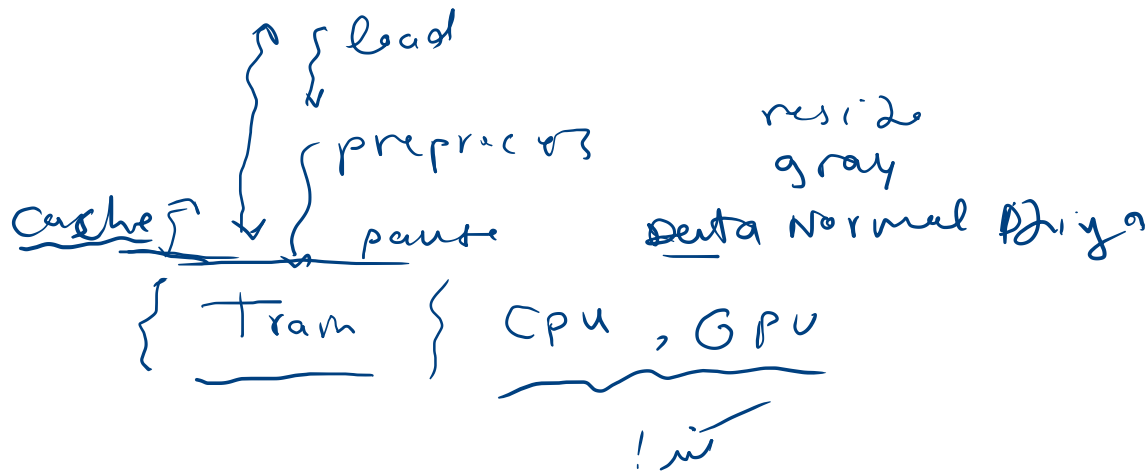 load
preprocess
resize
gray
Cache
pause
Data Normal
Train
CPU, GPU